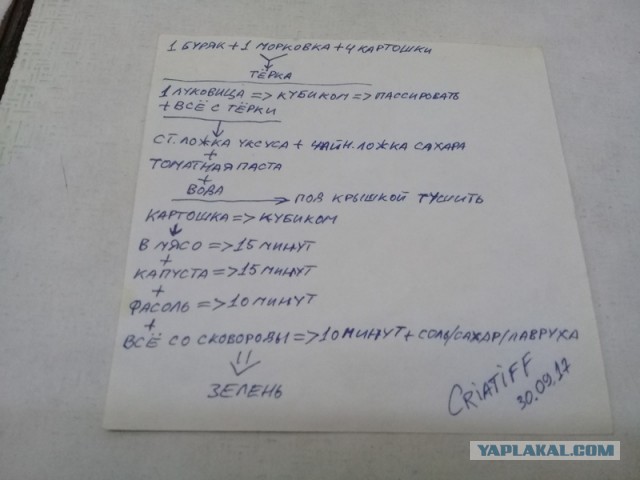 1 БУРЯК + 1 МОРКОВКА + 4 КАРТОШКИ
ТЁРКА
1 ЛУКОВИЦА => КУБИКОМ => ПАССИРОВАТЬ
+ ВСЁ С ТЁРКИ
СТ. ЛОЖКА УКСУСА + ЧАЙН. ЛОЖКА САХАРА
+
ТОМАТНАЯ ПАСТА
+
ВОДА → ПОД КРЫШКОЙ ТУШИТЬ
КАРТОШКА => КУБИКОМ
В МЯСО => 15 МИНУТ
+
КАПУСТА => 15 МИНУТ
+
ФАСОЛЬ => 10 МИНУТ
+
ВСЁ СО СКОВОРОДЫ => 10 МИНУТ + СОЛЬ/САХАР/ЛАВРУХА
ЗЕЛЕНЬ
CRiATiFF
30.09.17
YAPLAKAL.COM